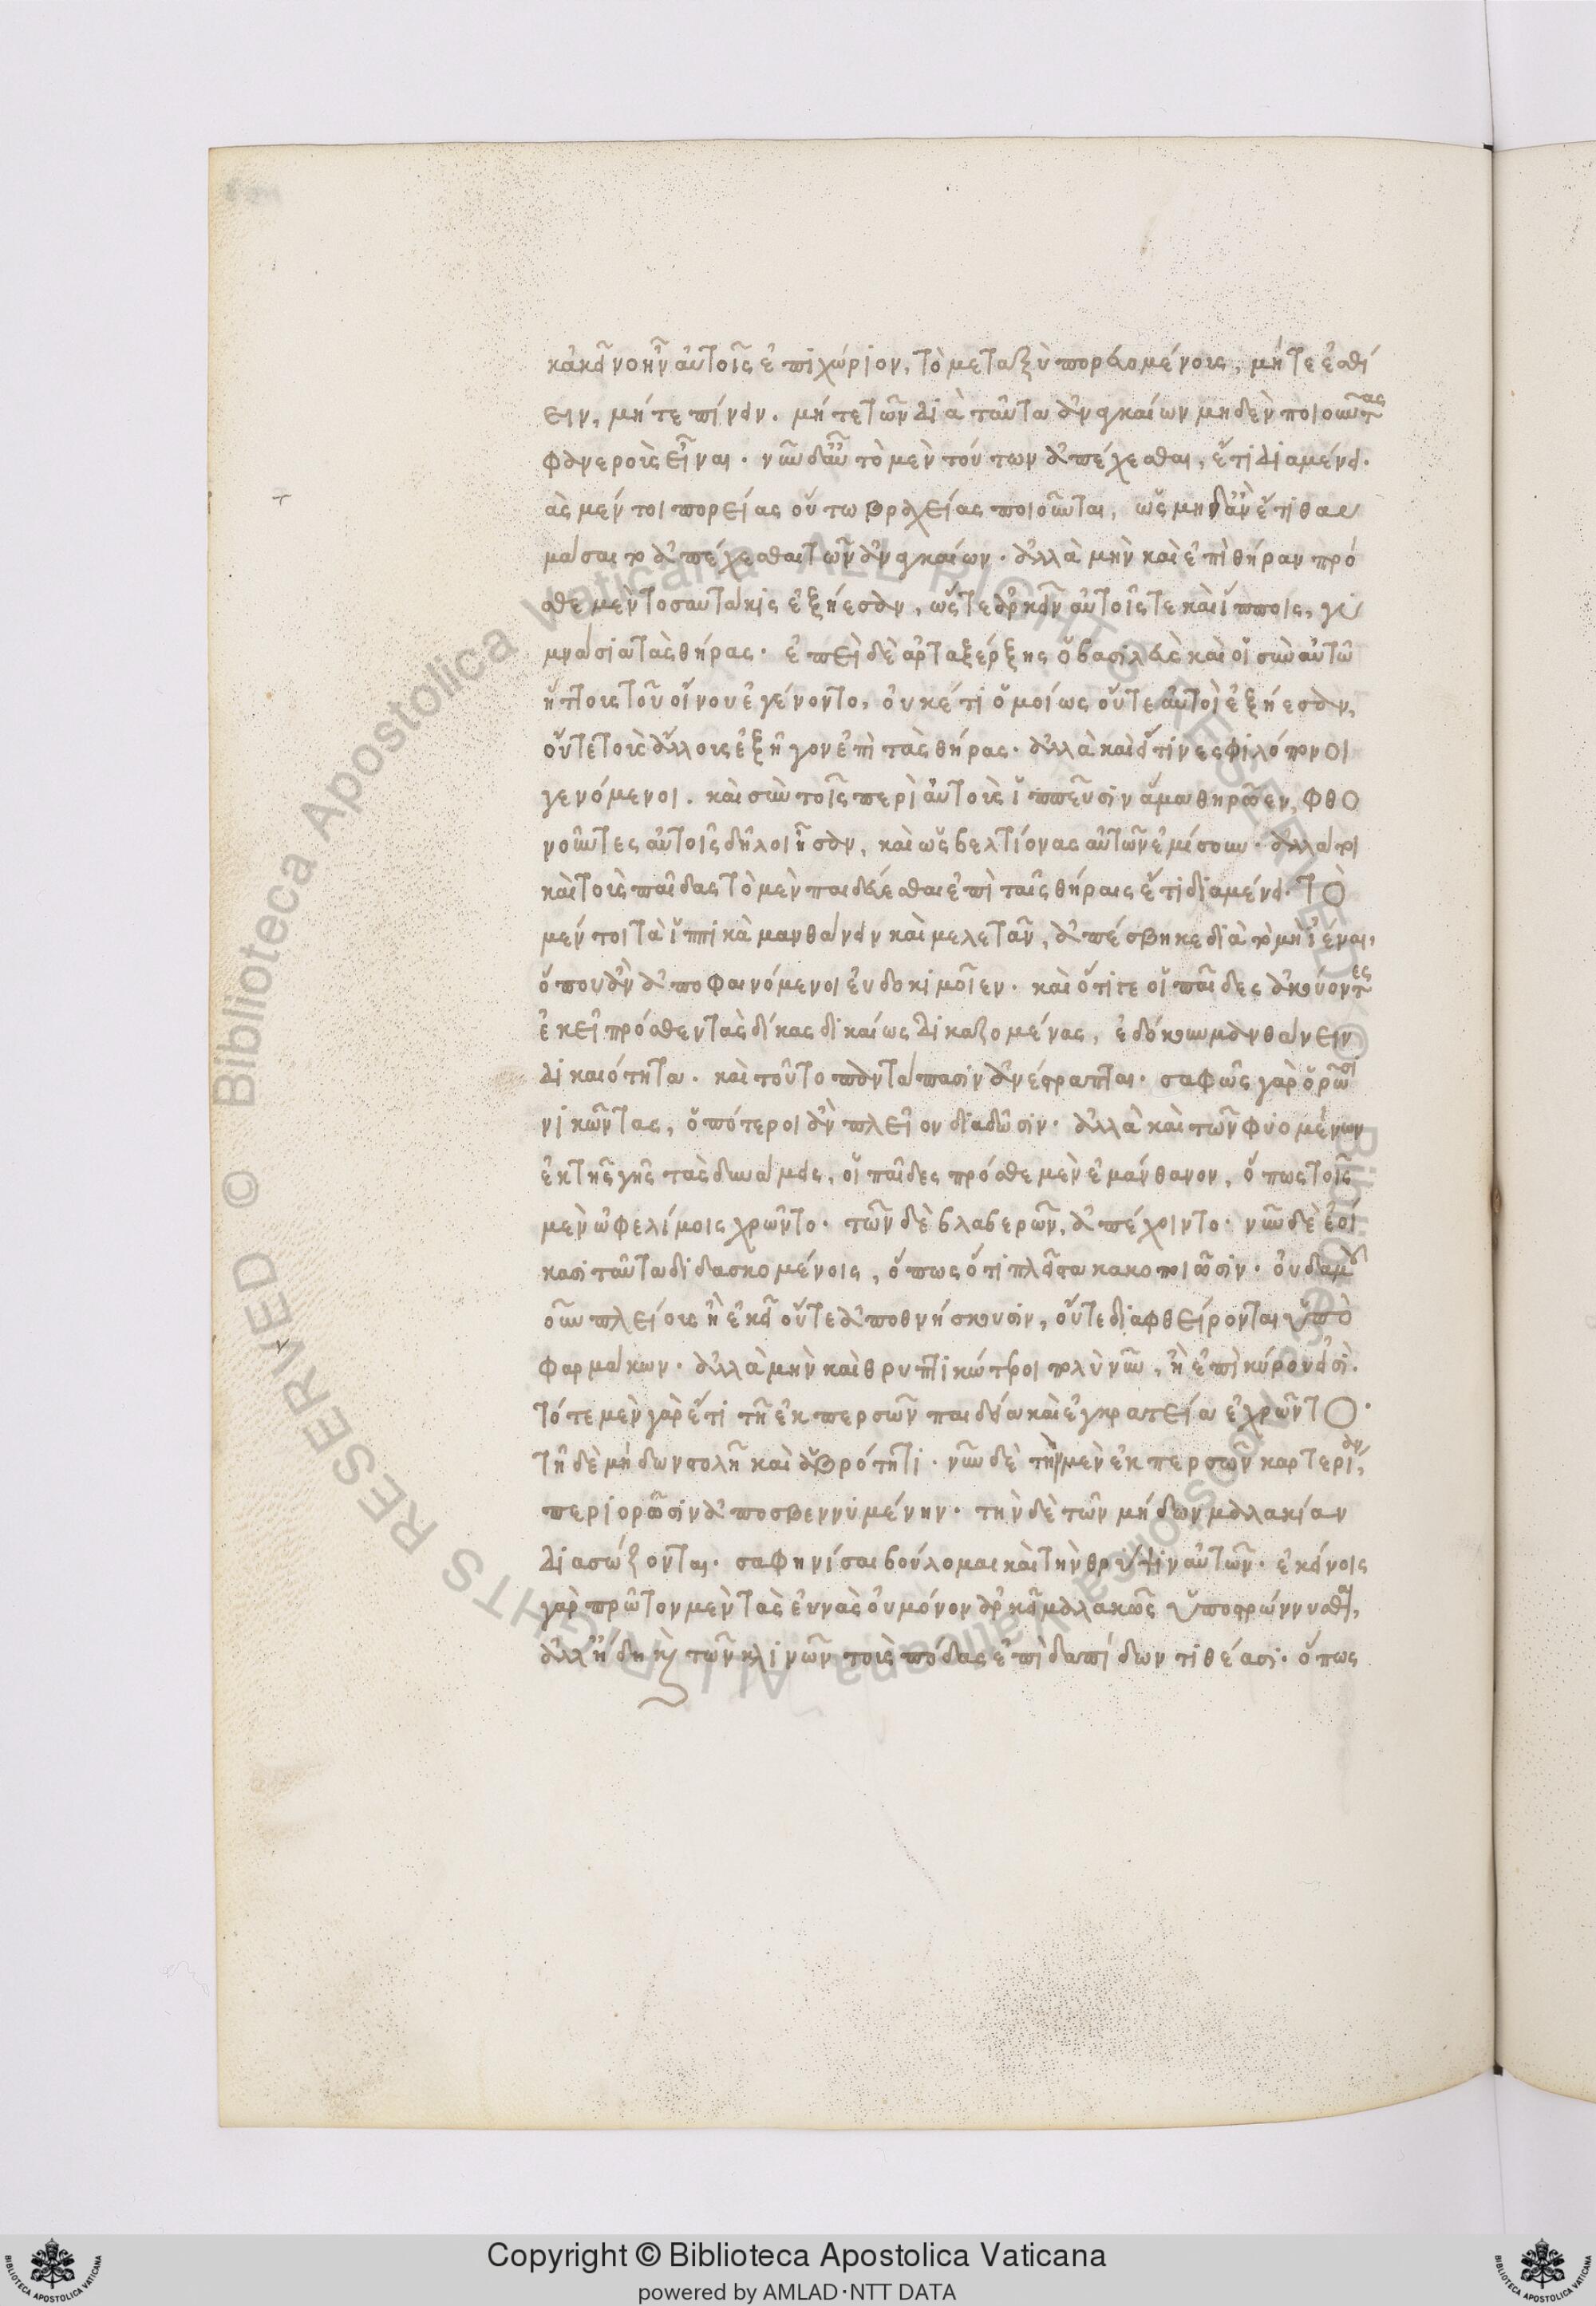 κἀκεῖνο ἦν αὐτοῖς ἐπιχώριον, τὸ μεταξὺ πορευομένους, μήτε ἐσθί
ειν, μήτε πίνειν. μήτε τῶν διὰ ταῦτα ἀναγκαίων μηδὲν ποιοῦντας
φανεροὺς εἶναι. νῦν δ' αὖ τὸ μὲν τούτων ἀπέχεσθαι, ἔτι διαμένει.
τὰς μέντοι πορείας οὕτω βραχείας ποιοῦνται, ὡς μηδὲν ἂν ἔτι θαυ
μάσαι τὸ ἀπέχεσθαι τῶν ἀναγκαίων. ἀλλὰ μὴν καὶ ἐπὶ θήραν πρό
σθε μὲν τοσαυτάκις ἐξῄεσαν, ὥστε ἀρκεῖν αὐτοῖς τε καὶ ἵπποις, γυ
μνάσια τὰς θήρας. ἐπεὶ δὲ ἀρταξέρξης ὁ βασιλεὺς καὶ οἱ σὺν αὐτῷ
ἥττους τοῦ οἴνου ἐγένοντο, οὐκέτι ὁμοίως οὔτε αὐτοὶ ἐξῄεσαν,
οὔτε τοὺς ἄλλους ἐξῆγον ἐπὶ τὰς θήρας. ἀλλὰ καὶ εἴ τινες φιλόπονοι
γενόμενοι. καὶ σὺν τοῖς περὶ αὐτοὺς ἱππεῦσιν ἅμα θηρῷεν, φθο
νοῦντες αὐτοῖς δῆλοι ἦσαν, καὶ ὡς βελτίονας αὐτῶν ἐμίσουν. ἀλλά τοι
καὶ τοὺς παῖδας τὸ μὲν παιδεύεσθαι ἐπὶ ταῖς θήραις ἔτι διαμένει. τὸ
μέντοι τὰ ἱππικὰ μανθάνειν καὶ μελετᾶν, ἀπέσβηκε διὰ τὸ μὴ ἰέναι,
ὅπου ἂν ἀποφαινόμενοι εὐδοκιμοῖεν. καὶ ὅτι γε οἱ παῖδες ἀκούοντες
ἐκεῖ πρόσθεν τὰς δίκας δικαίως δικαζομένας, ἐδόκουν μανθάνειν
δικαιότητα. καὶ τοῦτο παντάπασιν ἀνέστραπται. σαφῶς γὰρ ὁρῶσι
νικῶντας, ὁπότεροι ἂν πλεῖον διαδῶσιν. ἀλλὰ καὶ τῶν φυομένων
ἐκ τῆς γῆς τὰς δυνάμεις, οἱ παῖδες πρόσθε μὲν ἐμάνθανον, ὅπως τοῖς
μὲν ὠφελίμοις χρῶντο. τῶν δὲ βλαβερῶν, ἀπέχοιντο. νῦν δὲ ἐοί
κασι ταῦτα διδασκομένοις, ὅπως ὅτι πλεῖστα κακοποιῶσιν. οὐδαμοῦ
οὖν πλείους ἢ ἐκεῖ οὔτε ἀποθνήσκουσιν, οὔτε διαφθείρονται ὑπὸ
φαρμάκων. ἀλλὰ μὴν καὶ θρυπτικώτεροι πολὺ νῦν, ἢ ἐπὶ κύρου εἰσί.
τότε μὲν γὰρ ἔτι τῇ ἐκ περσῶν παιδείᾳ καὶ ἐγκρατείᾳ ἐχρῶντο.
τῇ δὲ μήδων στολῇ καὶ ἁβρότητι. νῦν δὲ τὴν μὲν ἐκ περσῶν καρτερίαν,
περιορῶσιν ἀποσβεννυμένην. τὴν δὲ τῶν μήδων μαλακίαν
διασώζονται. σαφηνίσαι βούλομαι καὶ τὴν θρύψιν αὐτῶν. ἐκείνοις
γὰρ πρῶτον μὲν τὰς εὐνὰς οὐ μόνον ἀρκεῖ μαλακῶς ὑποστρώννυσθαι,
ἀλλ' ἤδη καὶ τῶν κλινῶν τοὺς πόδας ἐπὶ δαπίδων τιθέασι. ὅπως
© Biblioteca Apostolica Vaticana ALL RIGHTS RESERVED
Copyright © Biblioteca Apostolica Vaticana
powered by AMLAD·NTT DATA